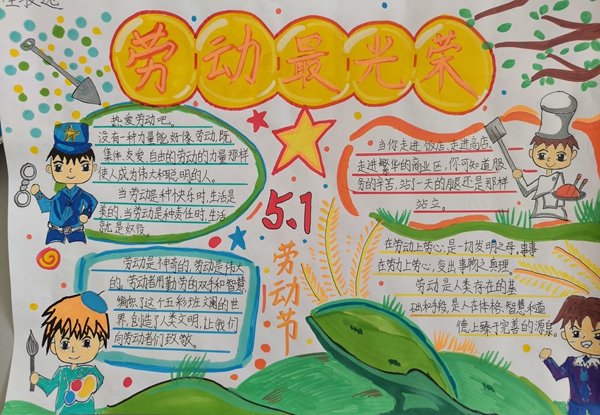 劳动最光荣
热爱劳动吧，
没有一种力量能好像劳动，既
集体、友爱、自由的劳动的力量那样
使人成为伟大和聪明的人。
当劳动是种快乐时，生活是
美的，当劳动是种责任时，生活
就是奴役。
当你走进饭店，走进商店，
走进繁华的商业区，你可知道服
务的辛苦，站了一天的腿还是那样
站立。
5.1
劳动节
劳动是神奇的，劳动是伟大
的。劳动者用勤劳的双手和智慧，
编织了这个五彩班斓的世
界，创造了人类文明，让我们
向劳动者们致敬。
在劳动上劳心，是一切发明之母，事事
在劳力上劳心，变出事物之真理。
劳动是人类存在的基
础和手段，是人在体格、智慧和道
德上臻于完善的源泉。